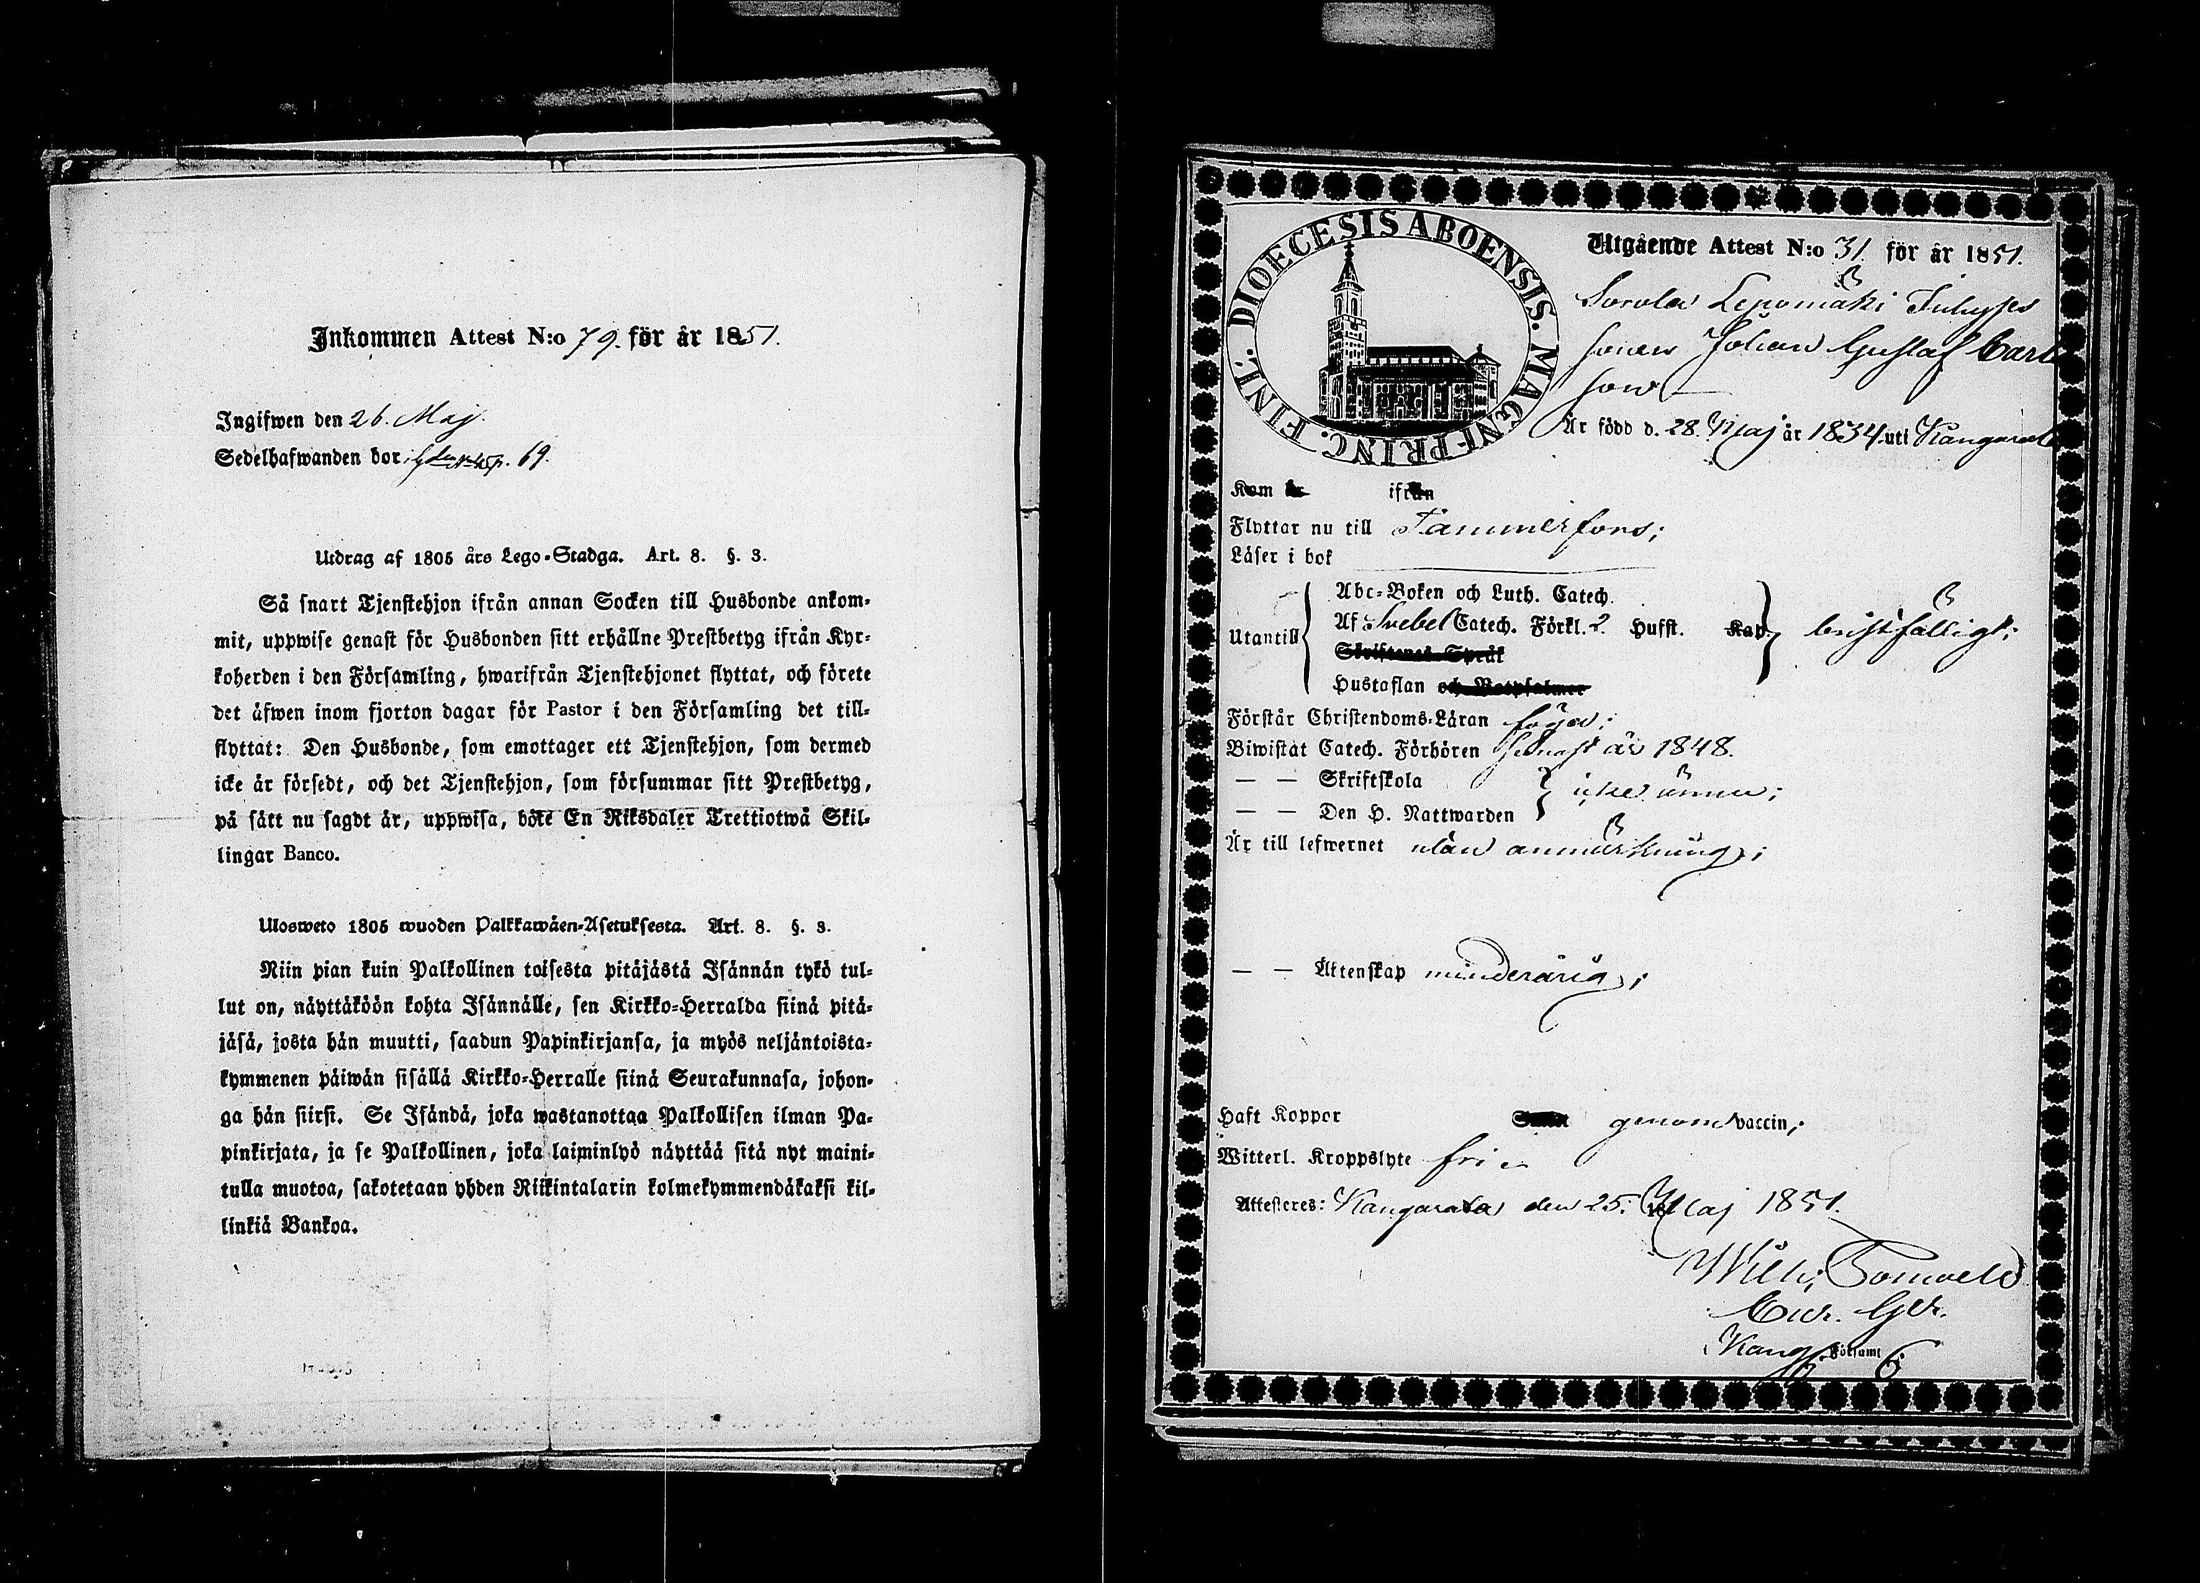 Inkommen Attest N:o 79. för år 1851.
Ingifwen den 26. Maj.
Sedelhafwanden bor 69.
Utdrag af 1805 års Lego-Stadga. Art. 8. §. 3.
Så snart Tjenstehjon ifrån annan Socken till Husbonde ankom-
mit, uppwise genast för Husbonden sitt erhållne Prestbetyg ifrån Kyr-
koherden i den Församling, hwarifrån Tjenstehjonet flyttat, och förete
det äfwen inom fjorton dagar för Pastor i den Församling det till-
flyttat: Den Husbonde, som emottager ett Tjenstehjon, som dermed
icke är försedt, och det Tjenstehjon, som försummar sitt Prestbetyg,
på sätt nu sagdt är, uppwisa, böte En Riksdaler Trettiotwå Skil-
lingar Banco.
Ulosweto 1805 wuoden Palkkawäen-Asetuksesta. Art. 8. §. 3.
Niin pian kuin Palkollinen toisesta pitäjästä Isännän tykö tul-
lut on, näyttäköön kohta Isännälle, sen Kirkko-Herralda siinä pitä-
jäsä, josta hän muutti, saadun Papinkirjansa, ja myös neljäntoista-
kymmenen päiwän sisällä Kirkko-Herralle siinä Seurakunnasa, johon-
ga hän siirsi. Se Isändä, joka wastanottaa Palkollisen ilman Pa-
pinkirjata, ja se Palkollinen, joka laiminlyö näyttää sitä nyt maini-
tulla muotoa, sakotetaan yhden Riikintalarin kolmekymmendäkaksi kil-
linkiä Bankoa.
DIOECESIS ABOENSIS. MAGNI PRINC. FINL.
Utgående Attest N:o 31. för år 1851.
Sorola Lepomäki
sonen Johan Gustaf Carls
son
Är född d. 28. Maj år 1834 uti Kangasala
Kom år ifrån
Flyttar nu till Tammerfors;
Läser i bok
Utantill
Abc-Boken och Luth. Catech.
Af Svebel Catech. Förkl. 2. Husst. Kap. bristfälligt;
Skriftenes Språk
Hustaflan och Botpsalmer
Förstår Christendoms-Läran föga;
Biwistat Catech. Förhören senast år 1848.
— — Skriftskola icke ännu;
— — Den H. Nattwarden
Är till lefwernet utan anmärkning;
— — Äktenskap minderårig;
Haft Koppor genom vaccin;
Witterl. Kroppslyte fri
Attesteres: Kangasala den 25. Maj 1851.
Wilh.
Cur. Ger.
Kang. Församl.